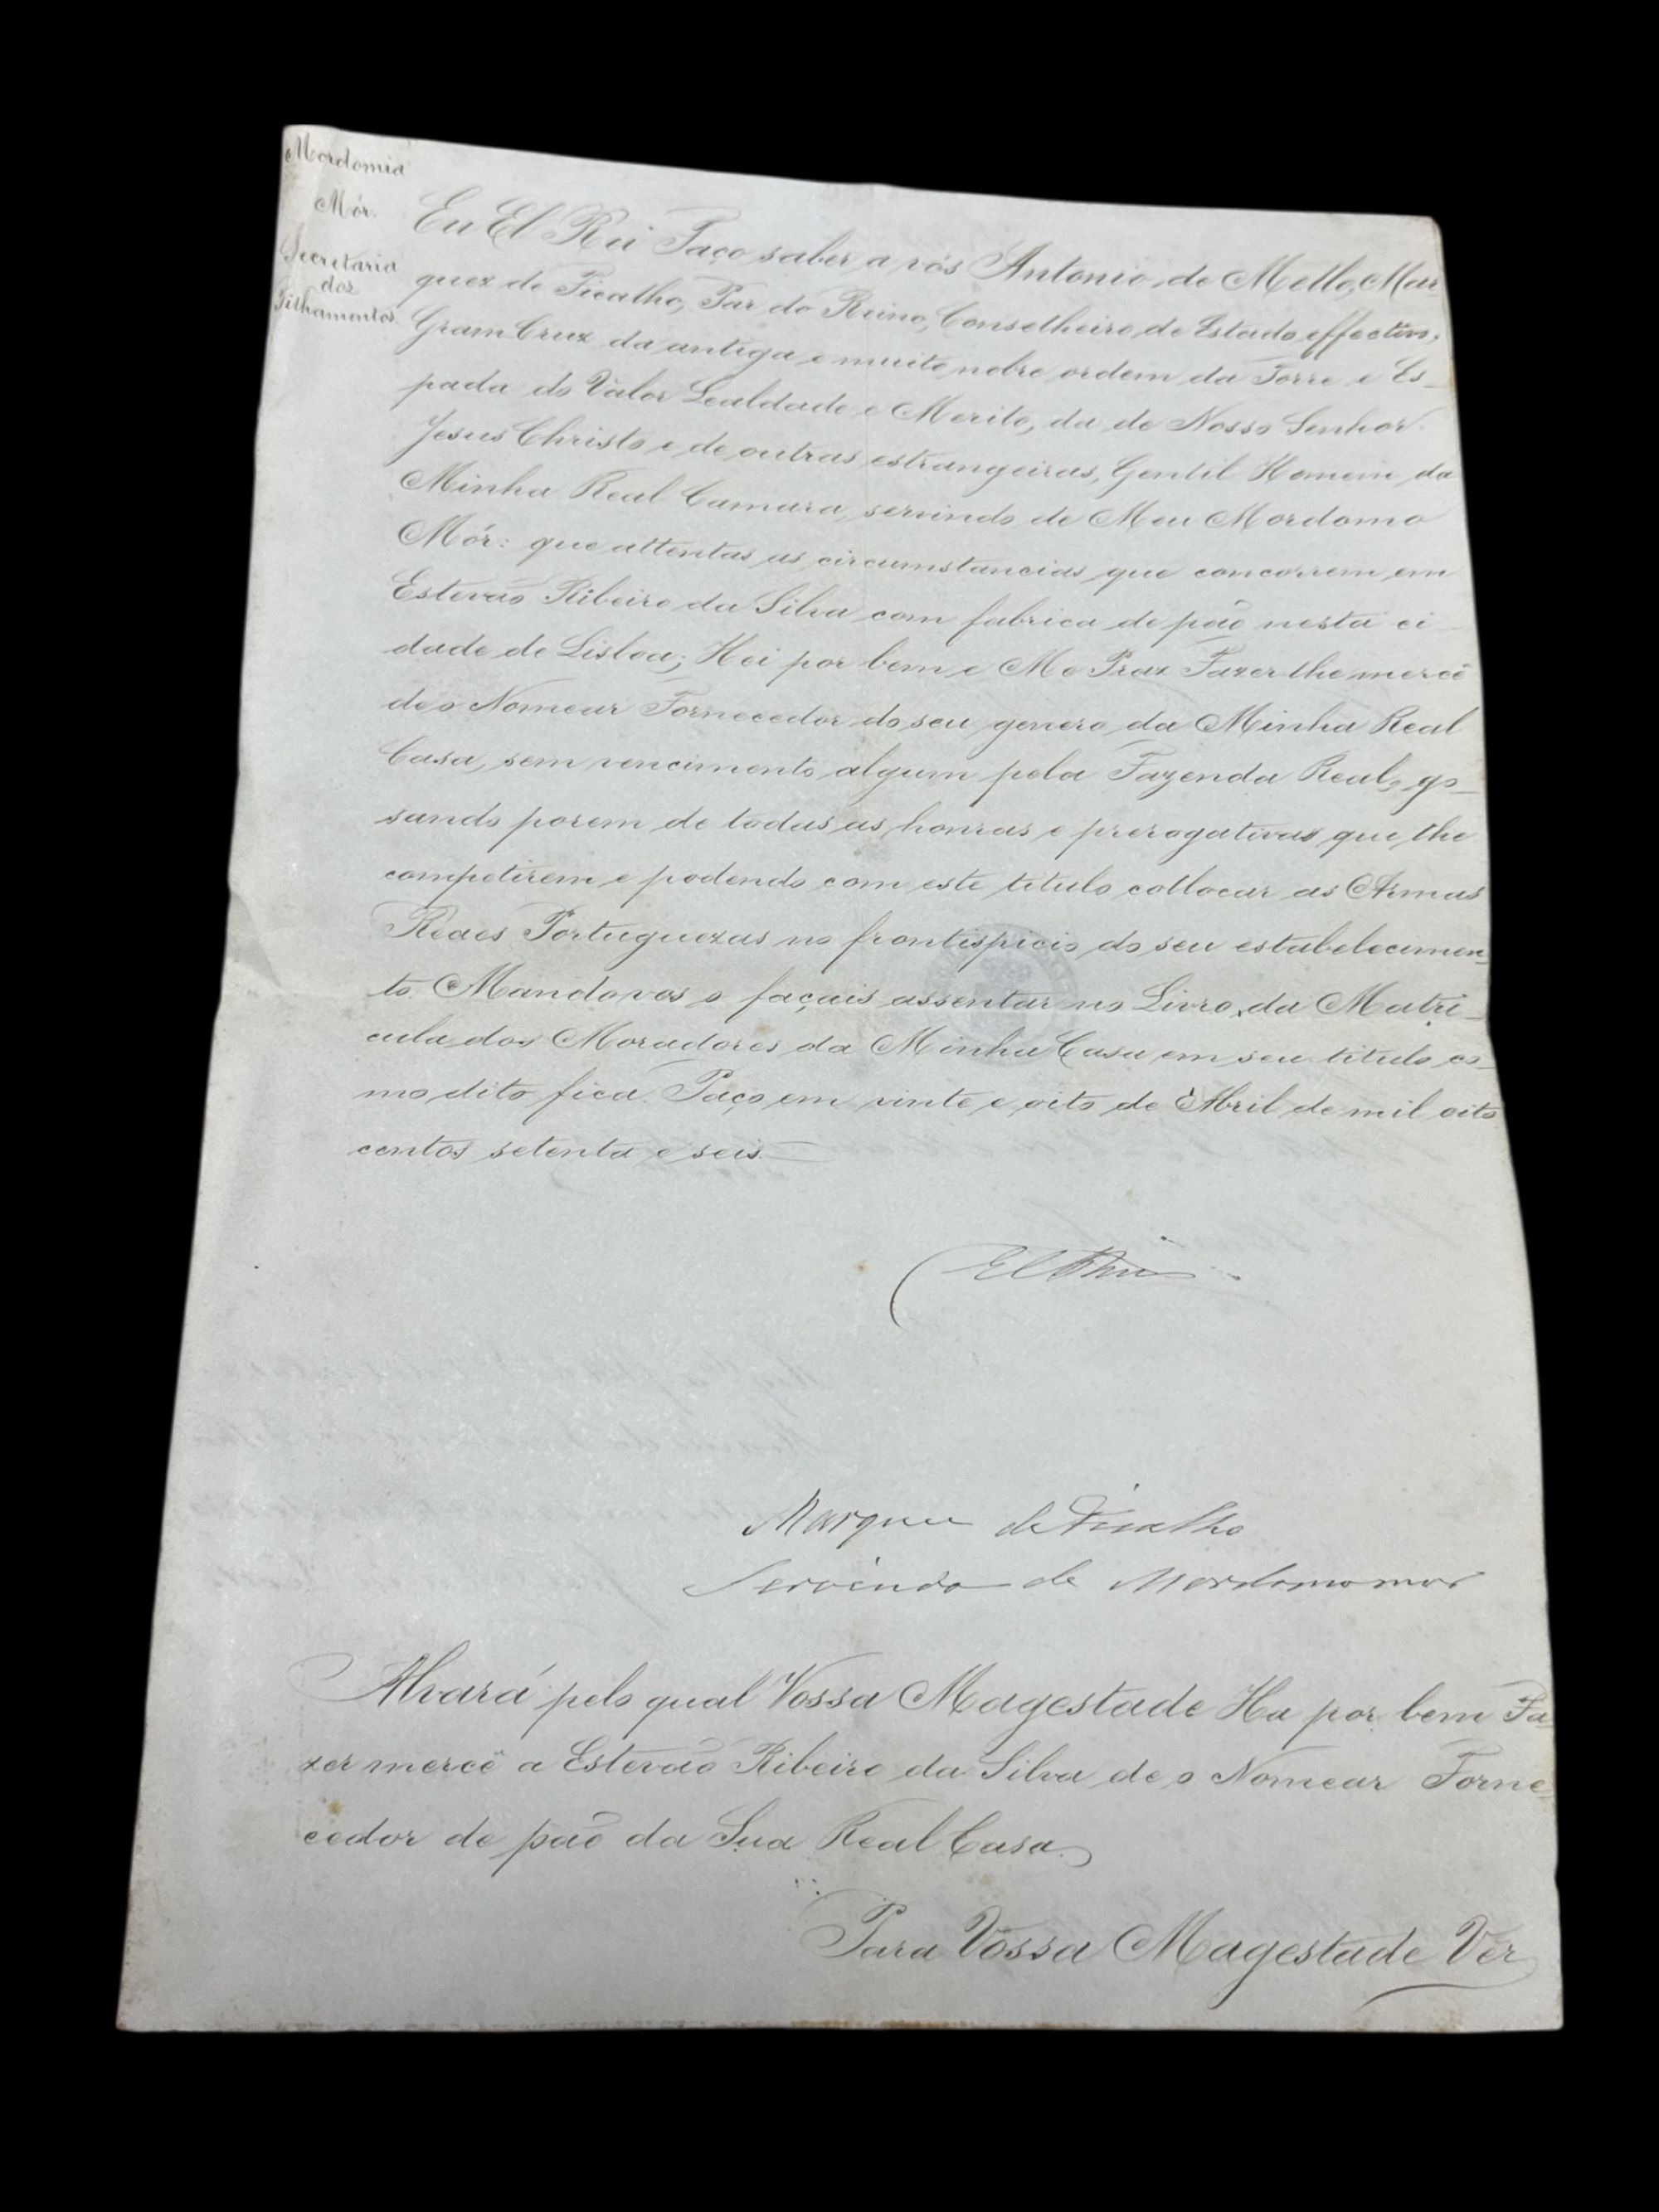 Mordomia
Mór.
Secretaria
dos
Filhamentos.
Eu El Rei Faço saber a vós Antonio de Mello, Mar-
quez de Ficalho, Par do Reino, Conselheiro de Estado effectivo,
Gram Cruz da antiga e muito nobre ordem da Torre e Es-
pada do Valor Lealdade e Merito, da de Nosso Senhor
Jesus Christo e de outras estrangeiras, Gentil Homem da
Minha Real Camara, servindo de Meu Mordomo
Mór: que attentas as circumstancias que concorrem em
Estevão Ribeiro da Silva com fabrica de pão nesta ci-
dade de Lisboa; Hei por bem e Me Praz Fazer lhe mercê
de o Nomear Fornecedor do seu genero da Minha Real
Casa, sem vencimento algum pela Fazenda Real, go-
sando porem de todas as honras e prerogativas que lhe
competirem e podendo com este titulo collocar as Armas
Reaes Portuguezas no frontispicio do seu estabelecimen-
to. Mando vos o façais assentar no Livro da Matri-
cula dos Moradores da Minha Casa em seu titulo co-
mo dito fica. Paço em vinte e oito de Abril de mil oito
centos setenta e seis.
El Rei
Marquez de Ficalho
Servindo de Mordomo mor
Alvará pelo qual Vossa Magestade Ha por bem Fa
zer mercê a Estevão Ribeiro da Silva de o Nomear Forne
cedor de pão da Sua Real Casa.
Para Vossa Magestade Ver